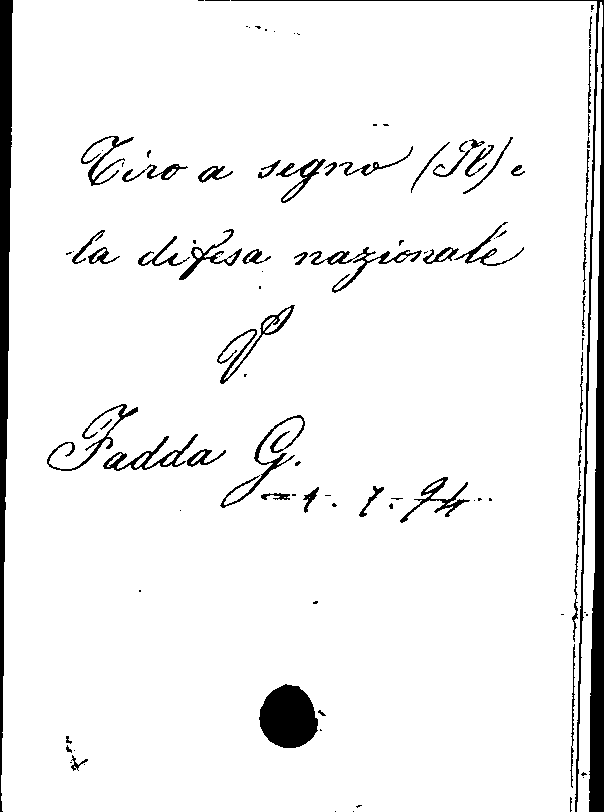 Tiro a segno (Il) e
la difesa nazionale
V.
Fadda G.
1. 7. 94